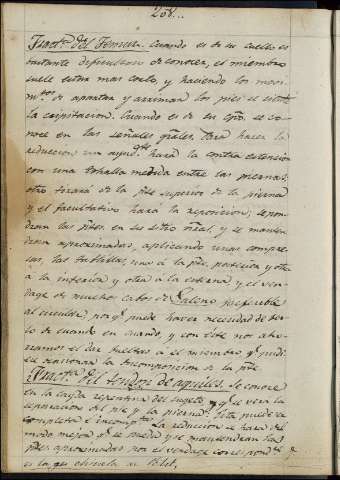 208...
Fract.ª del Femur. Cuando es de su cuello es
bastante dificultoso de conocer, el miembro
suele estar mas corto, y haciendo los movi-
m.tos de apartar y arrimar los pies se siente
la crepitacion. Cuando es de su cpo. se co-
noce en las señales grales. Para hacer la
reduccion, un ayud.te hará la contra estencion
con una tohalla metida entre las piernas,
otro tirará de la pte superior de la pierna
y el facultativo hará la reposicion, se pon-
dran las ptes. en su sitio nral. y se manten-
dran aproximadas, aplicando unas compre-
sas, las tablillas, una á la pte. posterior y otra
á la interior y otra á la esterna y el ven-
dage de muchos cabos de Galeno preferible
al circular, porq.e puede haver necesidad de ver-
lo de cuando en cuando, y con este nos aho-
rramos el dar bueltas a el miembro q.e pudie
se ocasionar la descomposicion de la pte.
Fract.ª del tendon de aquiles. Se conoce
en la caida repentina del sugeto, y q.e se vera la
separacion del pie y la pierna. Esta puede ser
completa é incomp.ta la reduccion se hará del
modo mejor q.e se pueda y se mantendran las
ptes aproximadas por el vendage correspond.te q.e
es la que